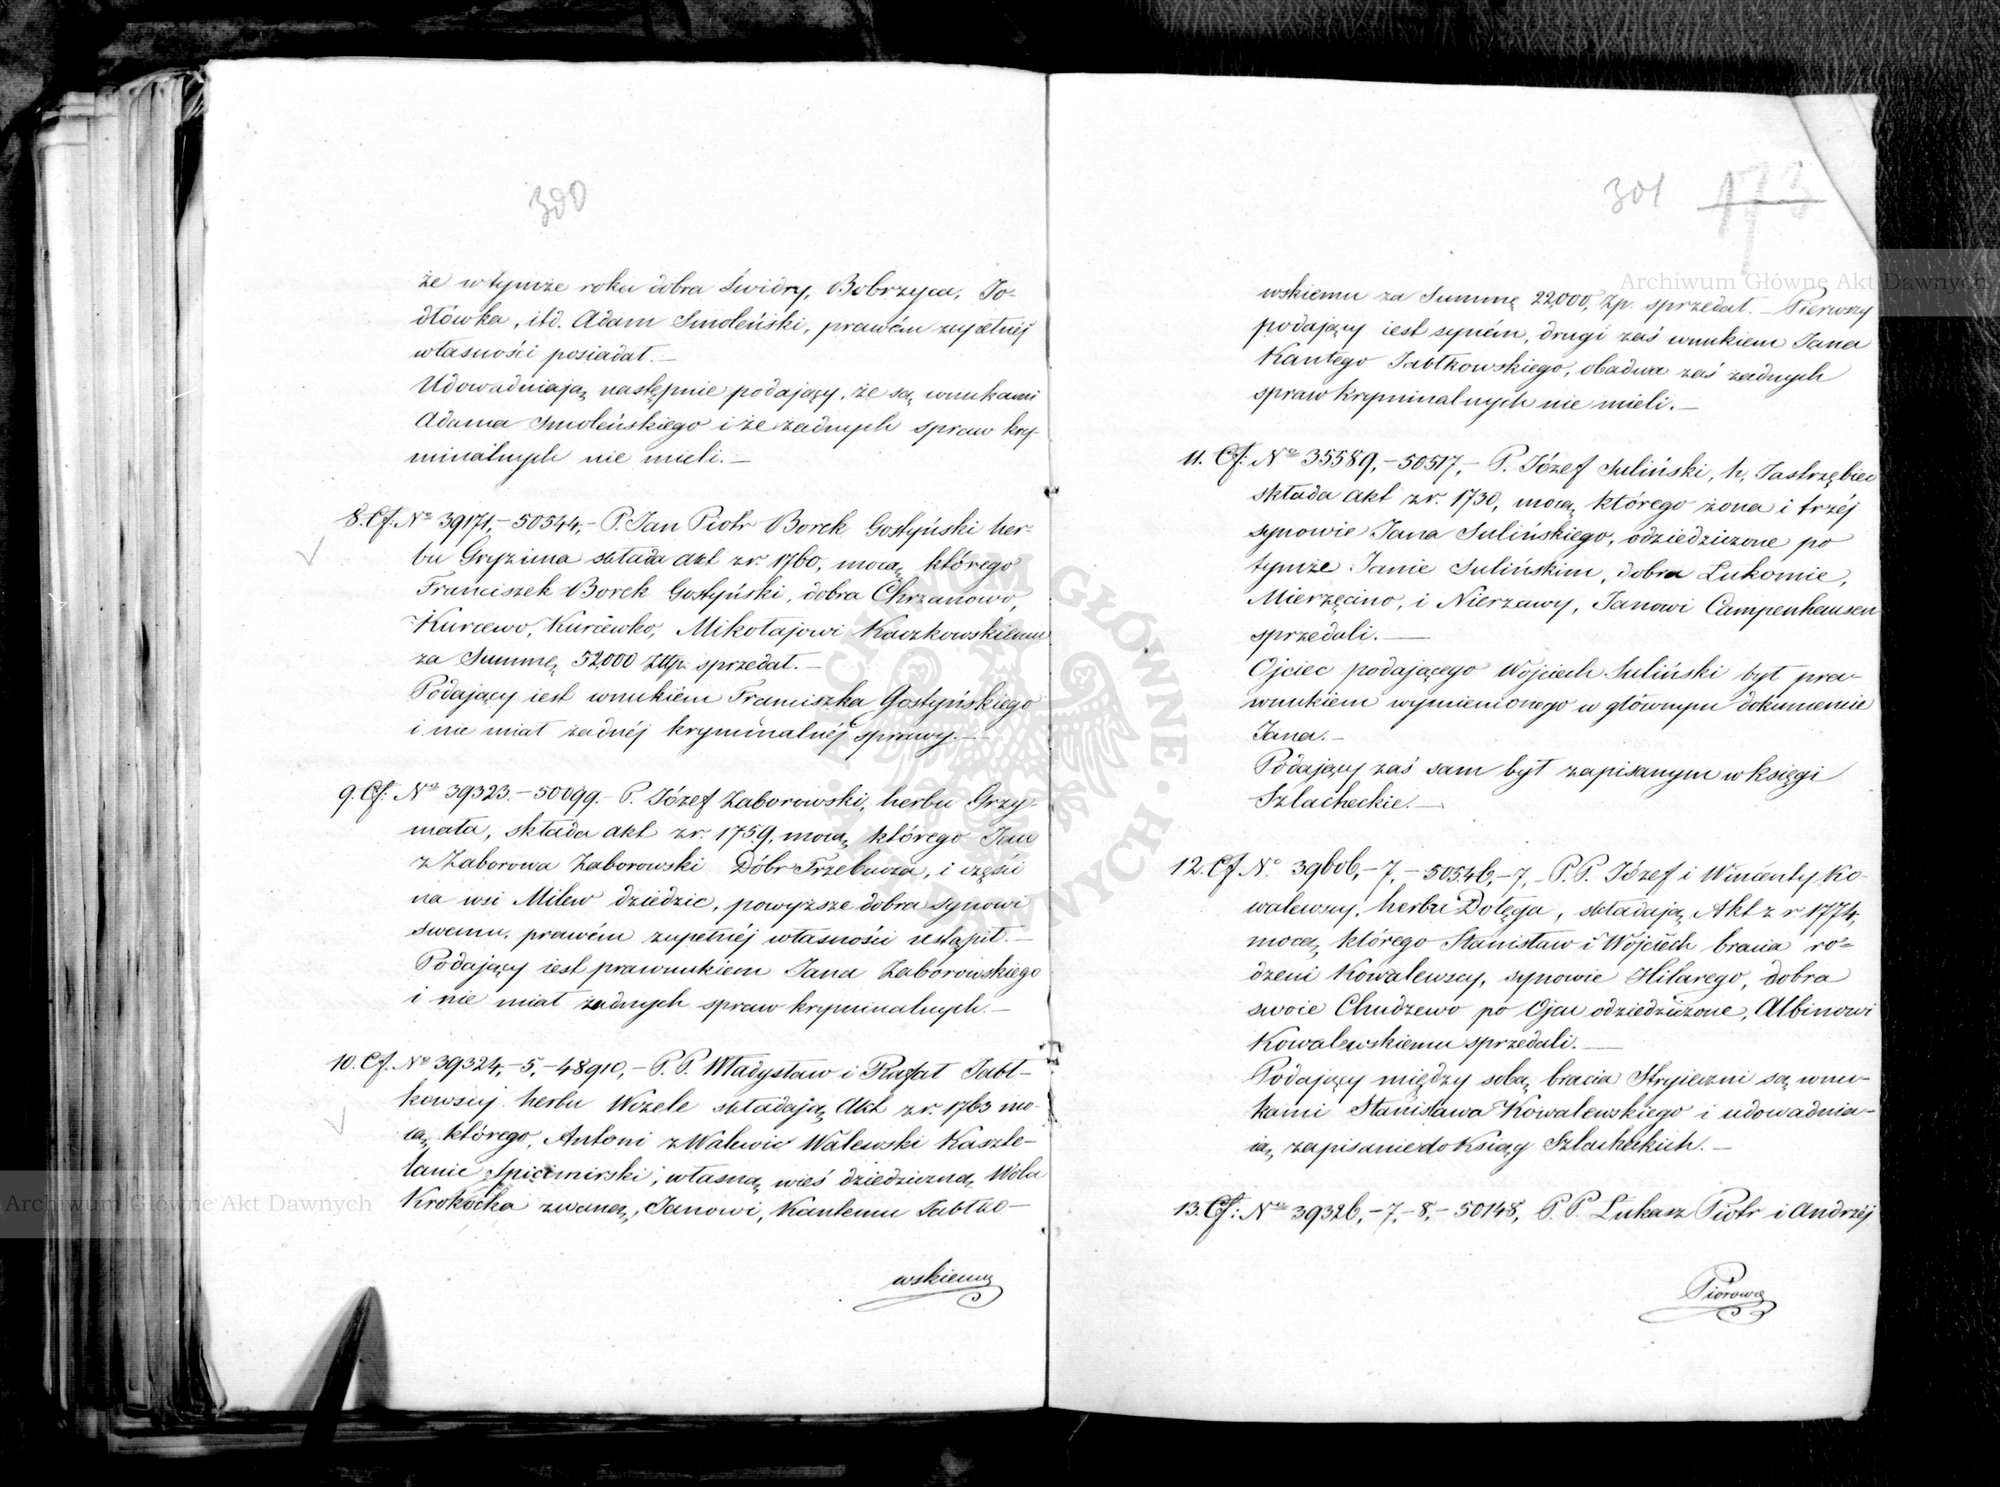 300
że w tymże roku dobra Świdry, Bobrzyca, Jo-
dłówka, itd. Adam Smoleński, prawém zupełnéj
własności posiadał. —
Udowadniają następnie podający, że są wnukami
Adama Smoleńskiego i że żadnych spraw kry-
minalnych nie mieli. —
8. Cf. No 39171, – 50544, – P. Jan Piotr Borek Gostyński her-
bu Gryzima składa akt z r. 1760, mocą którego
Franciszek Borek Gostyński, dobra Chrzanowo,
Kurcewo, Kurcewko, Mikołajowi Kaczkowskiemu
za Summę 52,000 Złłp. sprzedał. —
Podający iest wnukiem Franciszka Gostyńskiego
i nie miał żadnéj kryminalnéj sprawy. —
9. Cf: No 39323. – 50099. – P. Józef Zaborowski, herbu Grzy-
mała, składa akt z r. 1759, mocą którego Jan
z Zaborowa Zaborowski Dóbr Trzebucza, i części
na wsi Milew dziedzic, powyższe dobra synowi
swemu, prawém zupełnéj własności ustąpił. —
Podający iest prawnukiem Jana Zaborowskiego
i nie miał żadnych spraw kryminalnych. —
10. Cf. No 39324, – 5, – 48910, – P. P. Władysław i Rafał Jabł-
kowscy herbu Wczele składają Akt z r. 1763 mo-
cą którego, Antoni z Walewic Walewski Kaszte-
lanic Spicimirski, własną wieś dziedziczną, Wola
Krokocka zwaną, Janowi, Kantemu Jabłko-
wskiemu
301 173
wskiemu za Summę 22,000, Zp. sprzedał. — Pierwszy
podający iest syném, drugi zaś wnukiem Jana
Kantego Jabłkowskiego, obadwa zaś żadnych
spraw kryminalnych nie mieli. —
11. Cf: No 35589, – 50517, – P. Józef Suliński, h, Jastrzębiec
składa akt z r. 1730, mocą którego żona i trzéj
synowie Jana Sulińskiego, odziedziczone po
tymże Janie Sulińskim, dobra Łukomie,
Mierzęcino, i Nierzawy, Janowi Campenhausen
sprzedali. —
Ojciec podającego Wojciech Suliński był pra-
wnukiem wymienionego w głównym dokumencie
Jana. —
Podający zaś sam był zapisanym w księgi
Szlacheckie. —
12. Cf No. 39606, – 7, – 50546, – 7, – P. P. Józef i Wincenty Ko-
walewscy, herbu Dołęga, składają Akt z r 1774,
mocą którego Stanisław i Wojciech bracia ro-
dzeni Kowalewscy, synowie Hilarego, dobra
swoie Chudzewo po Ojcu odziedziczone, Albinowi
Kowalewskiemu sprzedali. —
Podający między sobą bracia Stryieczni są wnu-
kami Stanisława Kowalewskiego i udowadnia-
ią zapisanie do Ksiąg Szlacheckich. —
13. Cf: No 39326, – 7, – 8, – 50148, P. P. Łukasz Piotr i Andrzéj
Piórowie
Archiwum Główne Akt Dawnych
Archiwum Główne Akt Dawnych
ARCHIWUM GŁÓWNE AKT DAWNYCH